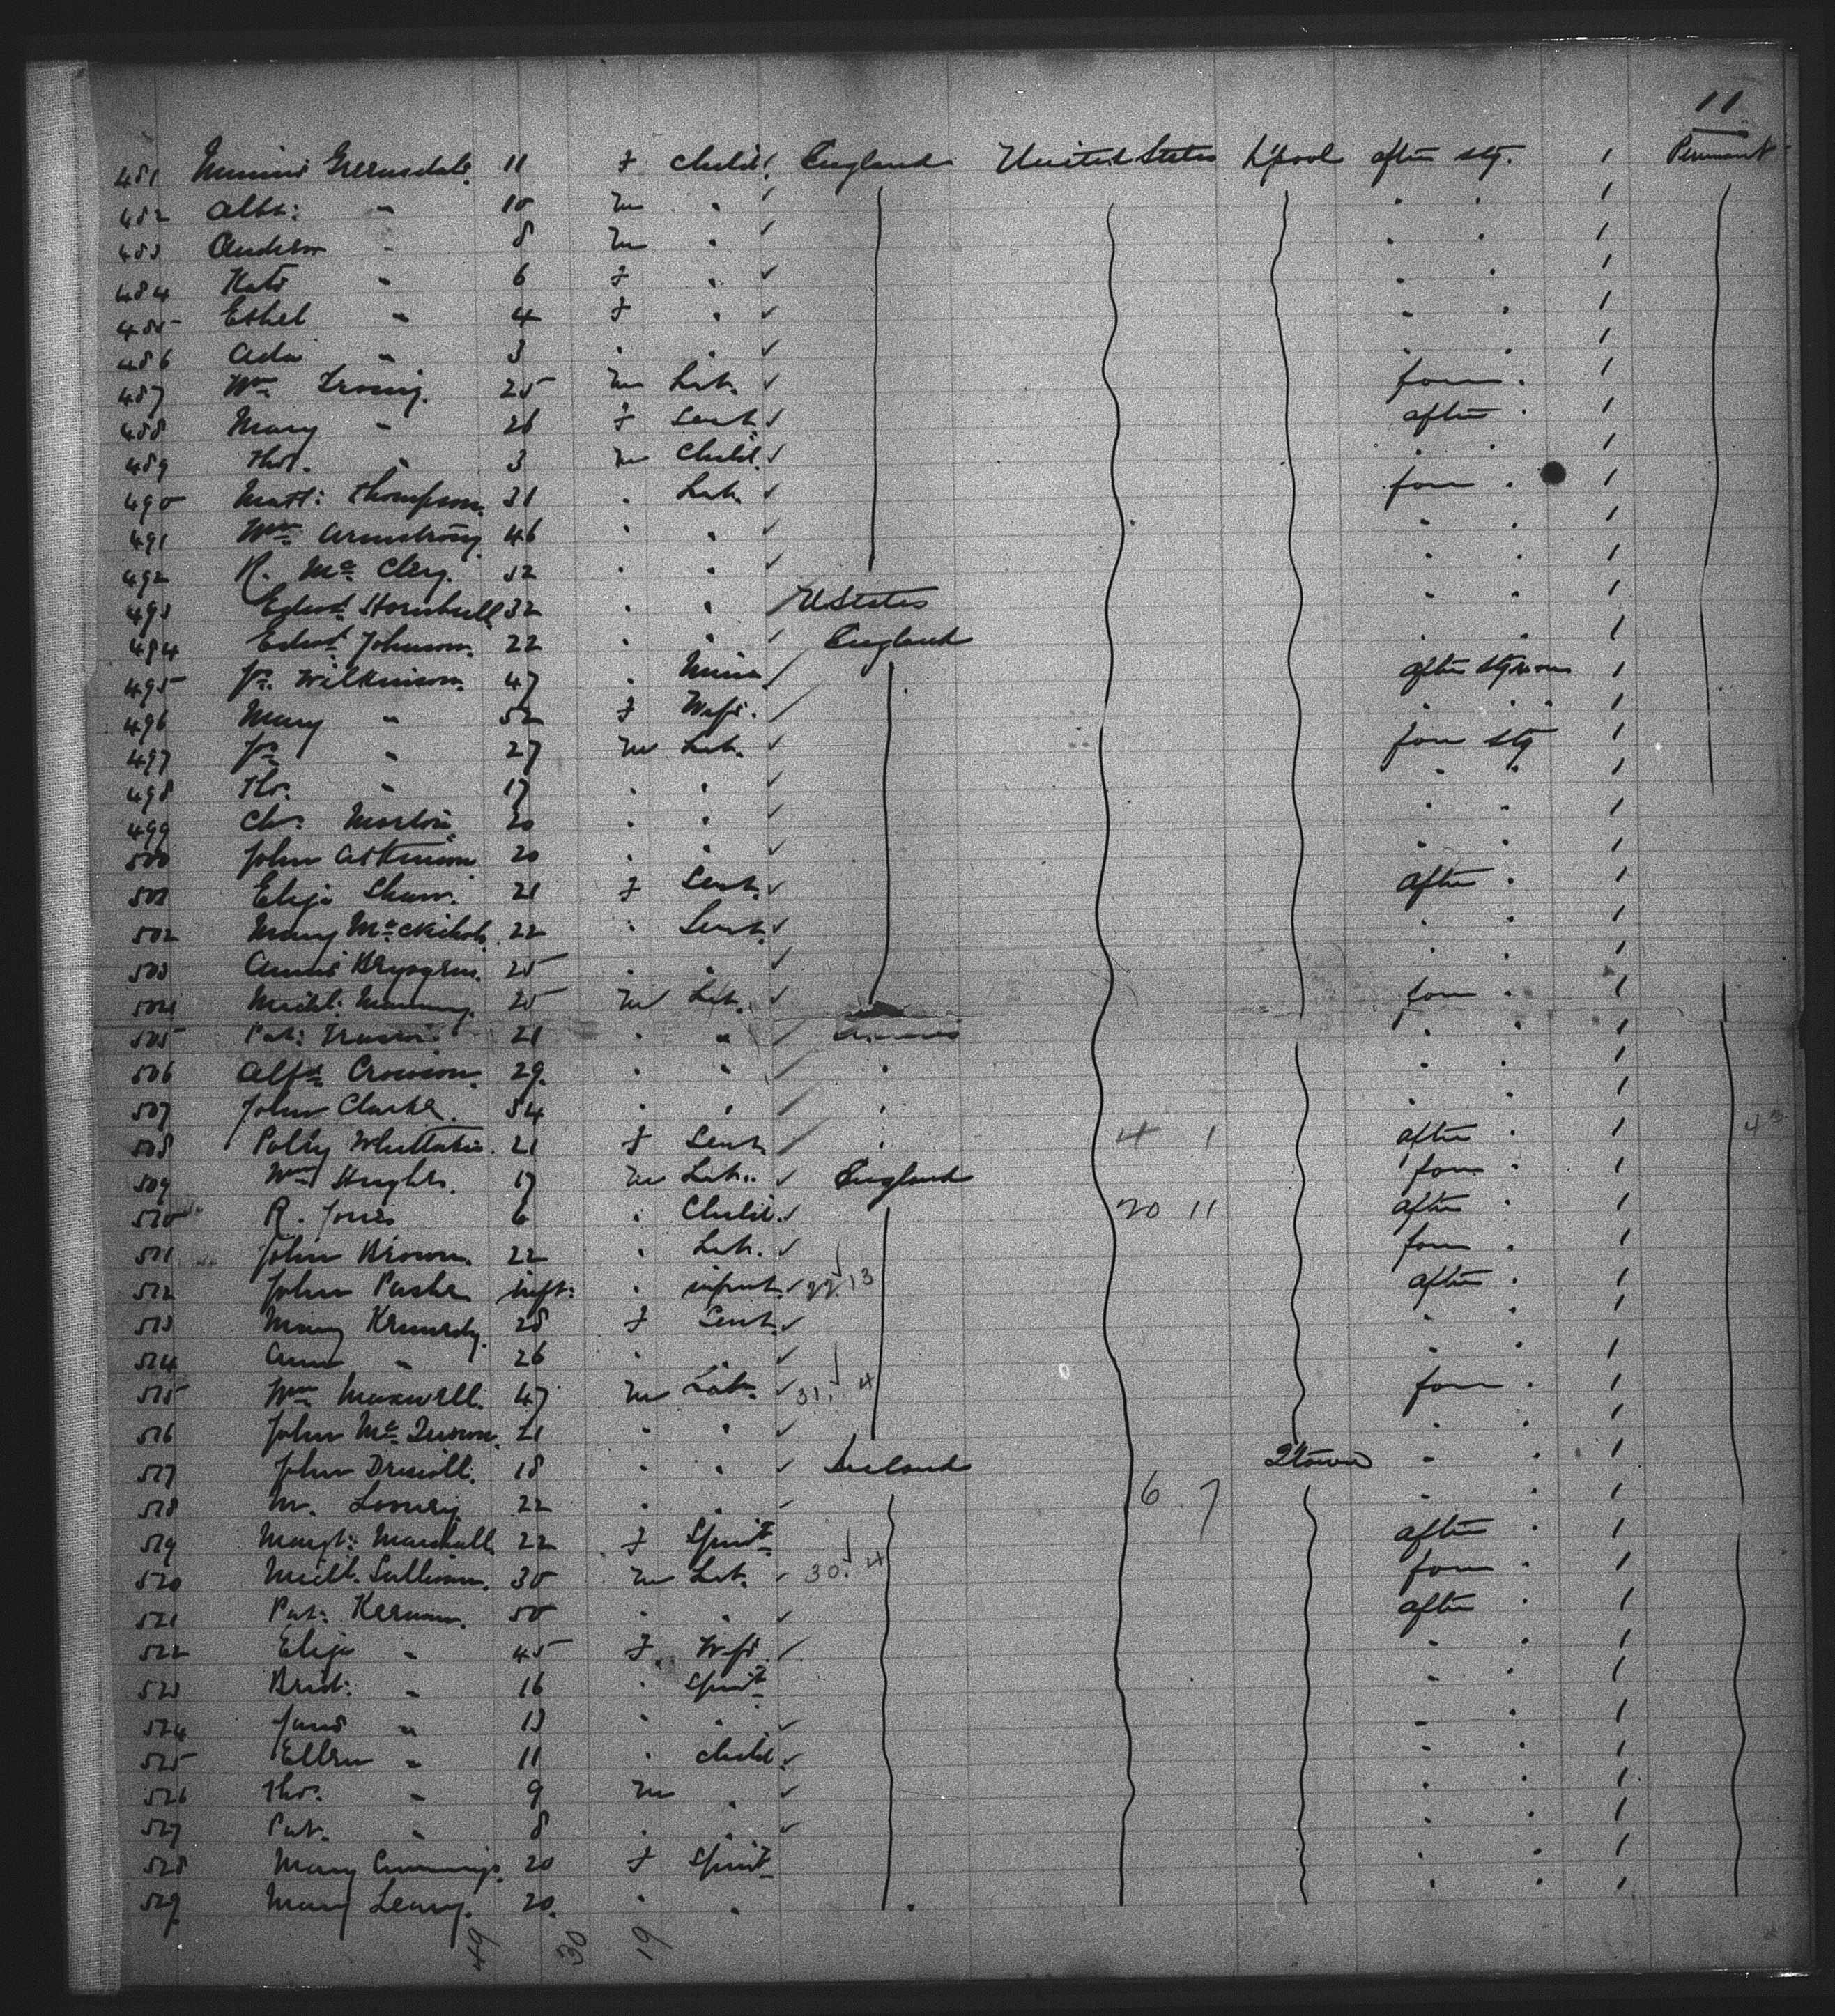 11
481 Minnie Greensdale. 11 f Child. England United States L'pool after stg. 1 Permanent
482 Albt: " 10 m " " " 1
483 Anderson " 8 m " " " 1
484 Kate " 6 f " " " 1
485 Ethel " 4 f " " " 1
486 Ada " 3 " " " " 1
487 Wm Irving. 25 m Lab. forw " 1
488 Mary " 26 f Servt. after " 1
489 Thos. " 3 m Child. " " 1
490 Matt: Thompson. 31 " Lab. forw " 1
491 Wm Armstrong. 46 " " " " 1
492 R. Mc Clery. 52 " " " " 1
493 Edwd Hornbull 32 " " U States " " 1
494 Edwd Johnson. 22 " " England " " 1
495 Js. Wilkinson. 47 " Miner after stg room 1
496 Mary " 52 f Wife. " " " 1
497 Js " 27 m Lab. forw stg 1
498 Tho. " 17 " " " " 1
499 Chs. Morton. 20 " " " " 1
500 John Atkinson 20 " " " " 1
501 Eliza Shaw. 21 f Servt. after " 1
502 Mary McNichol. 22 " Servt. " " 1
503 Annie 25 " " " " 1
504 Michl. Manning. 25 m Lab. forw " 1
505 Pat: 21 " " " " 1
506 Alfd 29. " " " " " 1
507 John Clarke. 54 " " " " " 1
508 Polly Whittaker. 21 f Servt. " 4 1 after " 1
509 Wm Hughes. 17 m Lab. England forw " 1
510 R. Jones 6 " Child. 20 11 after " 1
511 John Brown. 22 " Lab. forw " 1
512 John inft: " infant. 22 13 after " 1
513 Mary Kennedy. 28 f Servt. " " 1
514 Ann " 26 " " " " 1
515 Wm Maxwell. 47 m Lab. 31 4 forw " 1
516 John Mc 21 " " " " 1
517 John Driscoll. 18 " " Ireland Q'town " " 1
518 M. Looney. 22 " " 6 7 " " 1
519 Margt: Marshall. 22 f Spinst. after " 1
520 Michl. Sullivan. 30 m Lab. 30 4 forw " 1
521 Pat: Kernan. 50 " " after " 1
522 Eliza " 45 f Wife " " 1
523 Brid: " 16 " Spinst. " " 1
524 Jane " 13 " " " " 1
525 Ellen " 11 " child " " 1
526 Thos. " 9 m " " " 1
527 Pat. " 8 " " " " 1
528 Mary Cummings. 20 f Spinst. " " 1
529 Mary Leary. 20. " " " " " 1
49 30 19